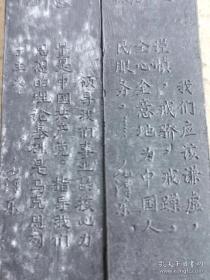 我们应该谦虚,
谨慎,戒骄,戒躁,
全心全意地为中国人
民服务。毛泽东
领导我们事业的核心力
量是中国共产党。指导我们
思想的理论基础是马克思列
宁主义。毛泽东